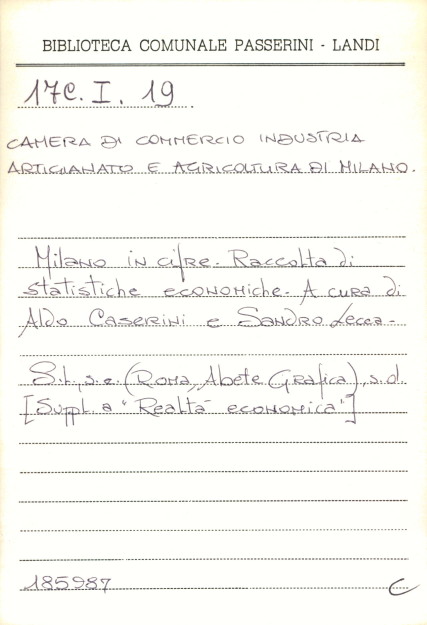 BIBLIOTECA COMUNALE PASSERINI - LANDI
17C. I. 19
CAMERA DI COMMERCIO INDUSTRIA
ARTIGIANATO E AGRICOLTURA DI MILANO.
Milano in cifre. Raccolta di
statistiche economiche. A cura di
Aldo Caserini e Sandro Lecca.
S.l., s.e. (Roma, Abete Grafica), s.d.
[Suppl. a "Realtà economica"]
185987 C